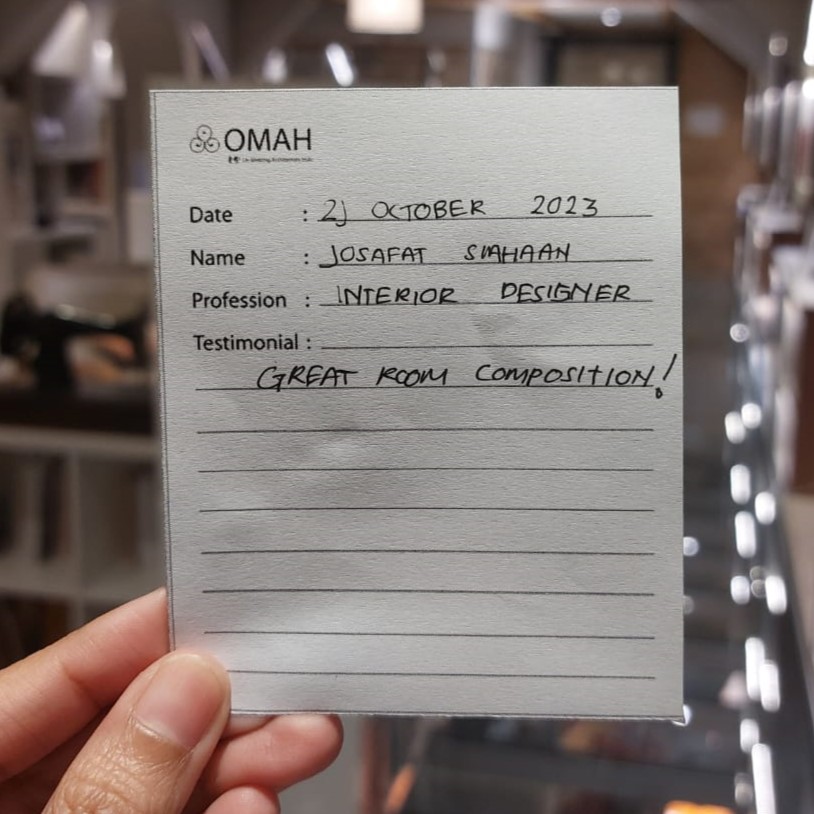 OMAH
Date : 21 OCTOBER 2023
Name : JOSAFAT SIAHAAN
Profession : INTERIOR DESIGNER
Testimonial :
GREAT ROOM COMPOSITION!